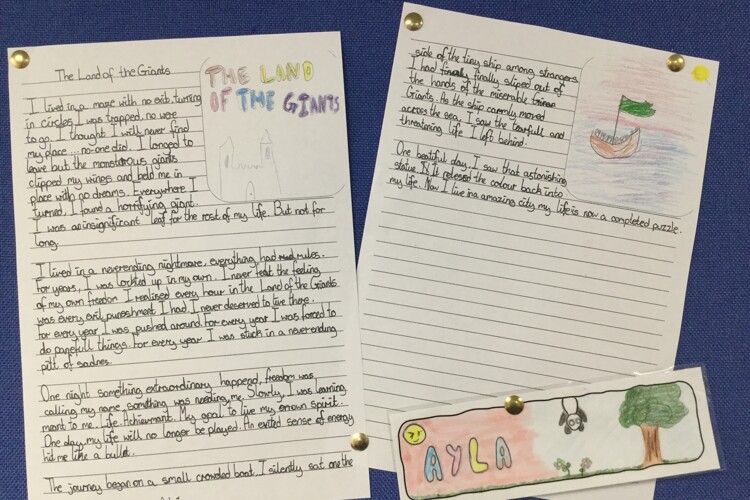 The Land of the Giants
THE LAND
OF THE GIANTS
I lived in a maze with no exit, turning
in circles. I was trapped, no were
to go. I thought I will never find
my place... no-one did. I longed to
leave but the monstorous giants
clipped my wings and held me in
place with no dreams. Everywhere I
turned, I found a horrifying giant.
I was an insignificant leaf for the rest of my life. But not for
long.
I lived in a neverending nightmare, everything had rules.
For years, I was locked up in my own. I never felt the feeling
of my own freedom. I realised every hour in the Land of the Giants
was every evil punishment I had. I never deserved to live there.
For every year I was pushed around. For every year I was forced to
do painfull things. For every year I was stuck in a neverending
pitt of sadnes.
One night something extraordinary happend, freedom was
calling my name, somthing was needing me. Slowly, I was learning
meant to me. Life. Achievmant. My goal to live my own spirit.
One day my life will no longer be played. An exited sense of energy
hit me like a bullet.
The journey began on a small crowded boat. I silently sat one the
side of the tiny ship among strangers
I had finally sliped out of
the hands of the miserable
Giants. As the ship carmly moved
across the sea, I saw the tearfull and
threatening life I left behind.
One beatiful day, I saw that astonishing
statue. It relesed the colour back into
my life. Now I live in a amazing city my life is now a completed puzzle.
AYLA